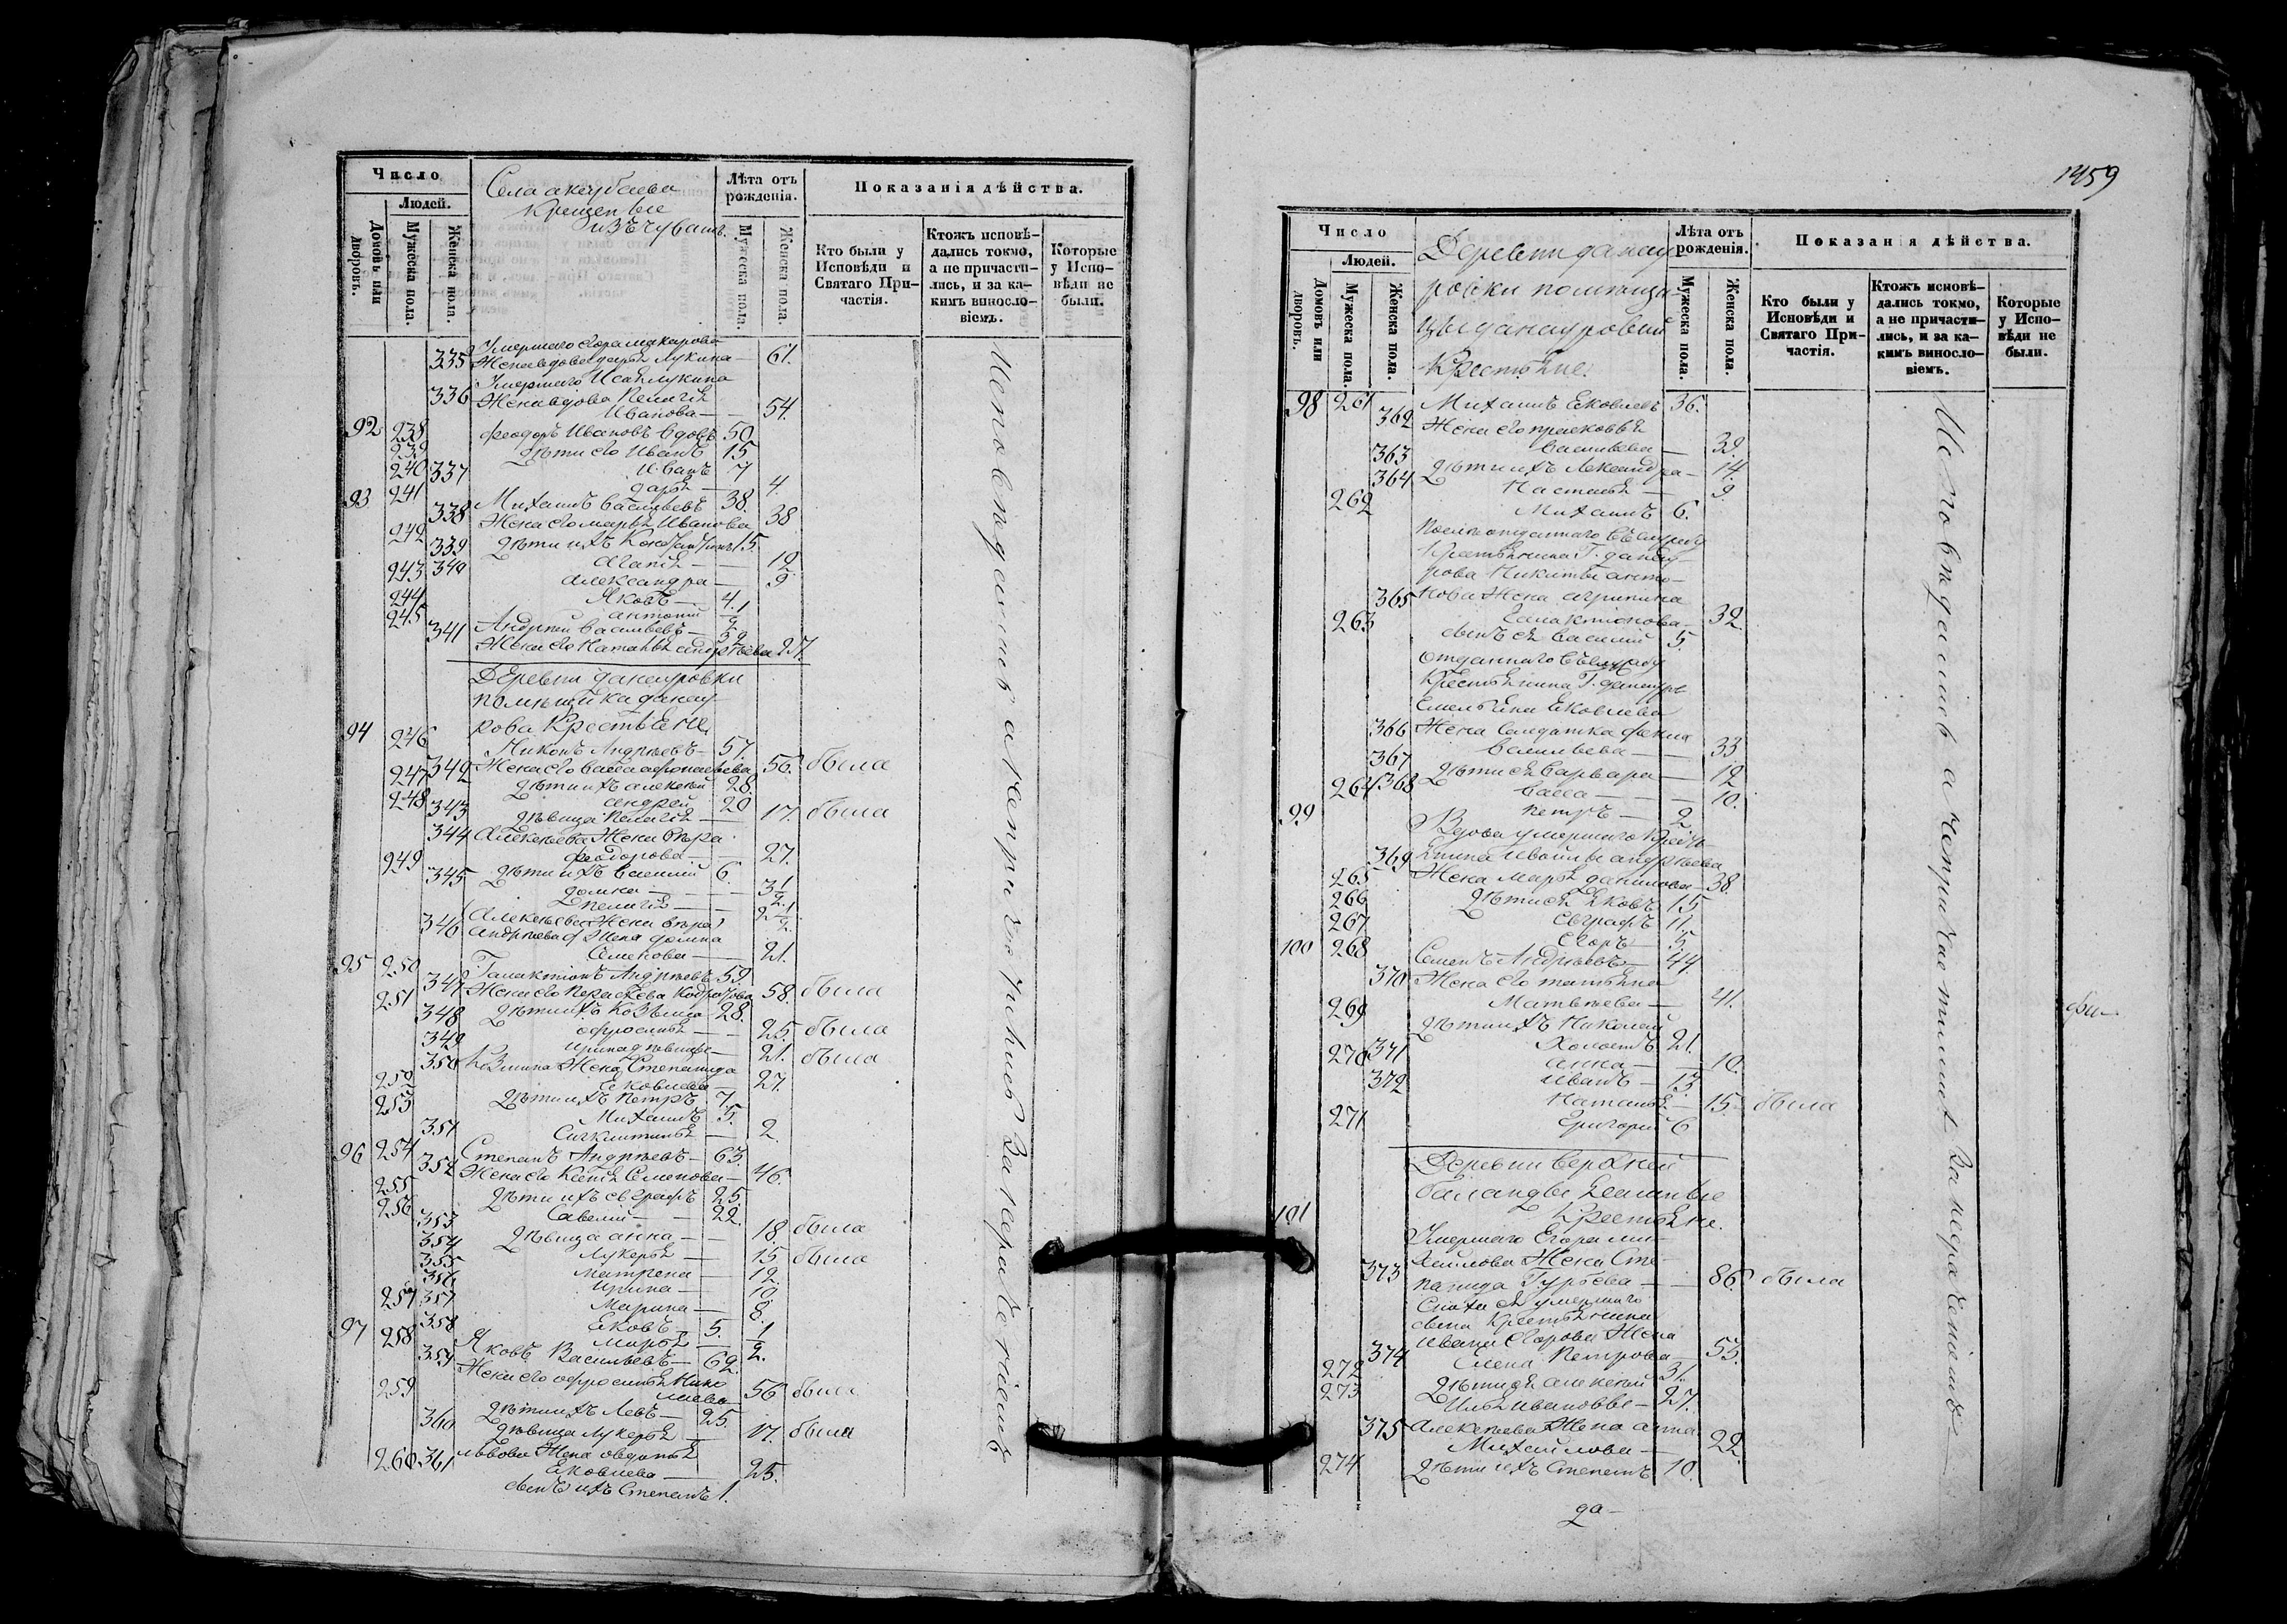 Число
Людей.
Домовъ или дворовъ.
Мужеска пола.
Женска пола.
Села акузбаева
Крещеные
изъ чувашъ.
Лѣта отъ рожденія.
Мужеска пола.
Женска пола.
Показанія дѣйства.
Кто были у Исповѣди и Святаго Причастія.
Ктожъ исповѣдались токмо, а не причастились, и за какимъ винословіемъ.
Которые у Исповѣди не были.
Умершаго Макарова
335 Жена вдова дарья Лукина — 61.
Умершаго Лукина
336 Жена вдова Пелагѣя
Иванова — 54.
92 238 Феодоръ Ивановъ вдовъ 50
239 Дѣти его Иванъ 15
240 Иванъ 7
337 дарья 4.
93 241 Михаилъ Васильевъ 38.
338 Жена его марья Иванова 38
242 Дѣти ихъ 15.
339 Агапія — 12
340 александра — 9
243 Яковъ — 4.
244 антоній
245 Андрей Васильевъ — 32
341 Жена его Наталья андрѣева 27.
Деревни данауровки
помѣщика данау
рова Крестьяне
94 246 Никонъ Андрѣевъ — 57.
342 Жена его васса афонасьева 56. была
247 Дѣти ихъ алексѣй 28.
248 андрей 20
343 дѣвица Пелагѣя — 17. была
344 Алексѣева Жена вѣра
феодорова — 27.
249 Дѣти ихъ Василій 6.
345 домна — 3 1/2
пелагѣя — 2 1/2
346 Андрѣева Жена домна
Семенова — 21.
95 250 Галактіонъ Андрѣевъ 59.
347 Жена его 58. была
251 Дѣти ихъ Козьма 28.
348 офросинья — 25. была
349 ирина дѣвица — 21. была
350 Козмина Жена Степанида
Яковлева — 27.
252 Дѣти ихъ Петръ 7.
253 Михаилъ 5.
351 — 2.
96 254 Степанъ Андрѣевъ — 63.
352 Жена его Ксенія Семенова — 46.
255 Дѣти ихъ евграфъ 25
256 Савелій — 22.
353 Дѣвица анна — 18. была
354 Лукерья — 15 была
355 Матрена — 12.
356 Ирина — 10
357 Марина — 8.
257 Яковъ — 5.
358 Марья 1/2.
97 258 Яковъ Васильевъ — 62
359 Жена его офросинья Нико
лаева 56 была
259 Дѣти ихъ Левъ — 25.
360 Дѣвица Лукерья — 17. была
361 Львова Жена овдотья
Яковлева — 25.
260 сынъ ихъ Степанъ 1.
Исповѣдались а не причастились за нерачениемъ
1459
Число
Людей.
Домовъ или дворовъ.
Мужеска пола.
Женска пола.
Деревни данау
ровки помѣщи
цы данауровой
Крестьяне.
Лѣта отъ рожденія.
Мужеска пола.
Женска пола.
Показанія дѣйства.
Кто были у Исповѣди и Святаго Причастія.
Ктожъ исповѣдались токмо, а не причастились, и за какимъ винословіемъ.
Которые у Исповѣди не были.
98 261 Михаилъ Яковлевъ 36.
362 Жена его прасковья
Васильева — 39.
363 Дѣти ихъ Александра — 14.
364 Настасья — 9.
262 Михаилъ 6.
Крестьянина Г. данау
рова Никиты анто
365 нова Жена агрипина
Галактіонова — 32
263 сынъ ея Василій 5.
Крестьянина Г. данауро
Емельяна Яковлева
366 Жена Солдатка
Васильева — 33
367 Дѣти ея Варвара — 12
368 васса — 10.
264 Петръ — 2
99 Вдова умершаго Кресть
янина андрѣева
369 Жена марья данилова — 38.
265 Дѣти ея Яковъ 15
266 евграфъ 11.
267 Егоръ 5.
100 268 Семенъ Андрѣевъ — 44
370 Жена его татьяна
Матвѣева — 41.
269 Дѣти ихъ Николай
Холостъ 21.
371 анна — 10.
270 иванъ — 13
372 Наталья — 15 была
271 Григорій 6
Деревни верхней
баланды
Крестьяне.
101 Умершаго Егора ми
хайлова Жена Сте
373 панида Гурьева — 86. была
Сноха ея умершаго
сына Крестьянина
ивана Егорова Жена
374 Елена Петрова — 53.
272 Дѣти ея алексѣй 31.
273 Илья ивановы — 27.
375 Алексѣева Жена анна
Михайлова — 22.
274 Дѣти ихъ Степанъ 10.
Исповѣдались а не причастились за нерачениемъ
да